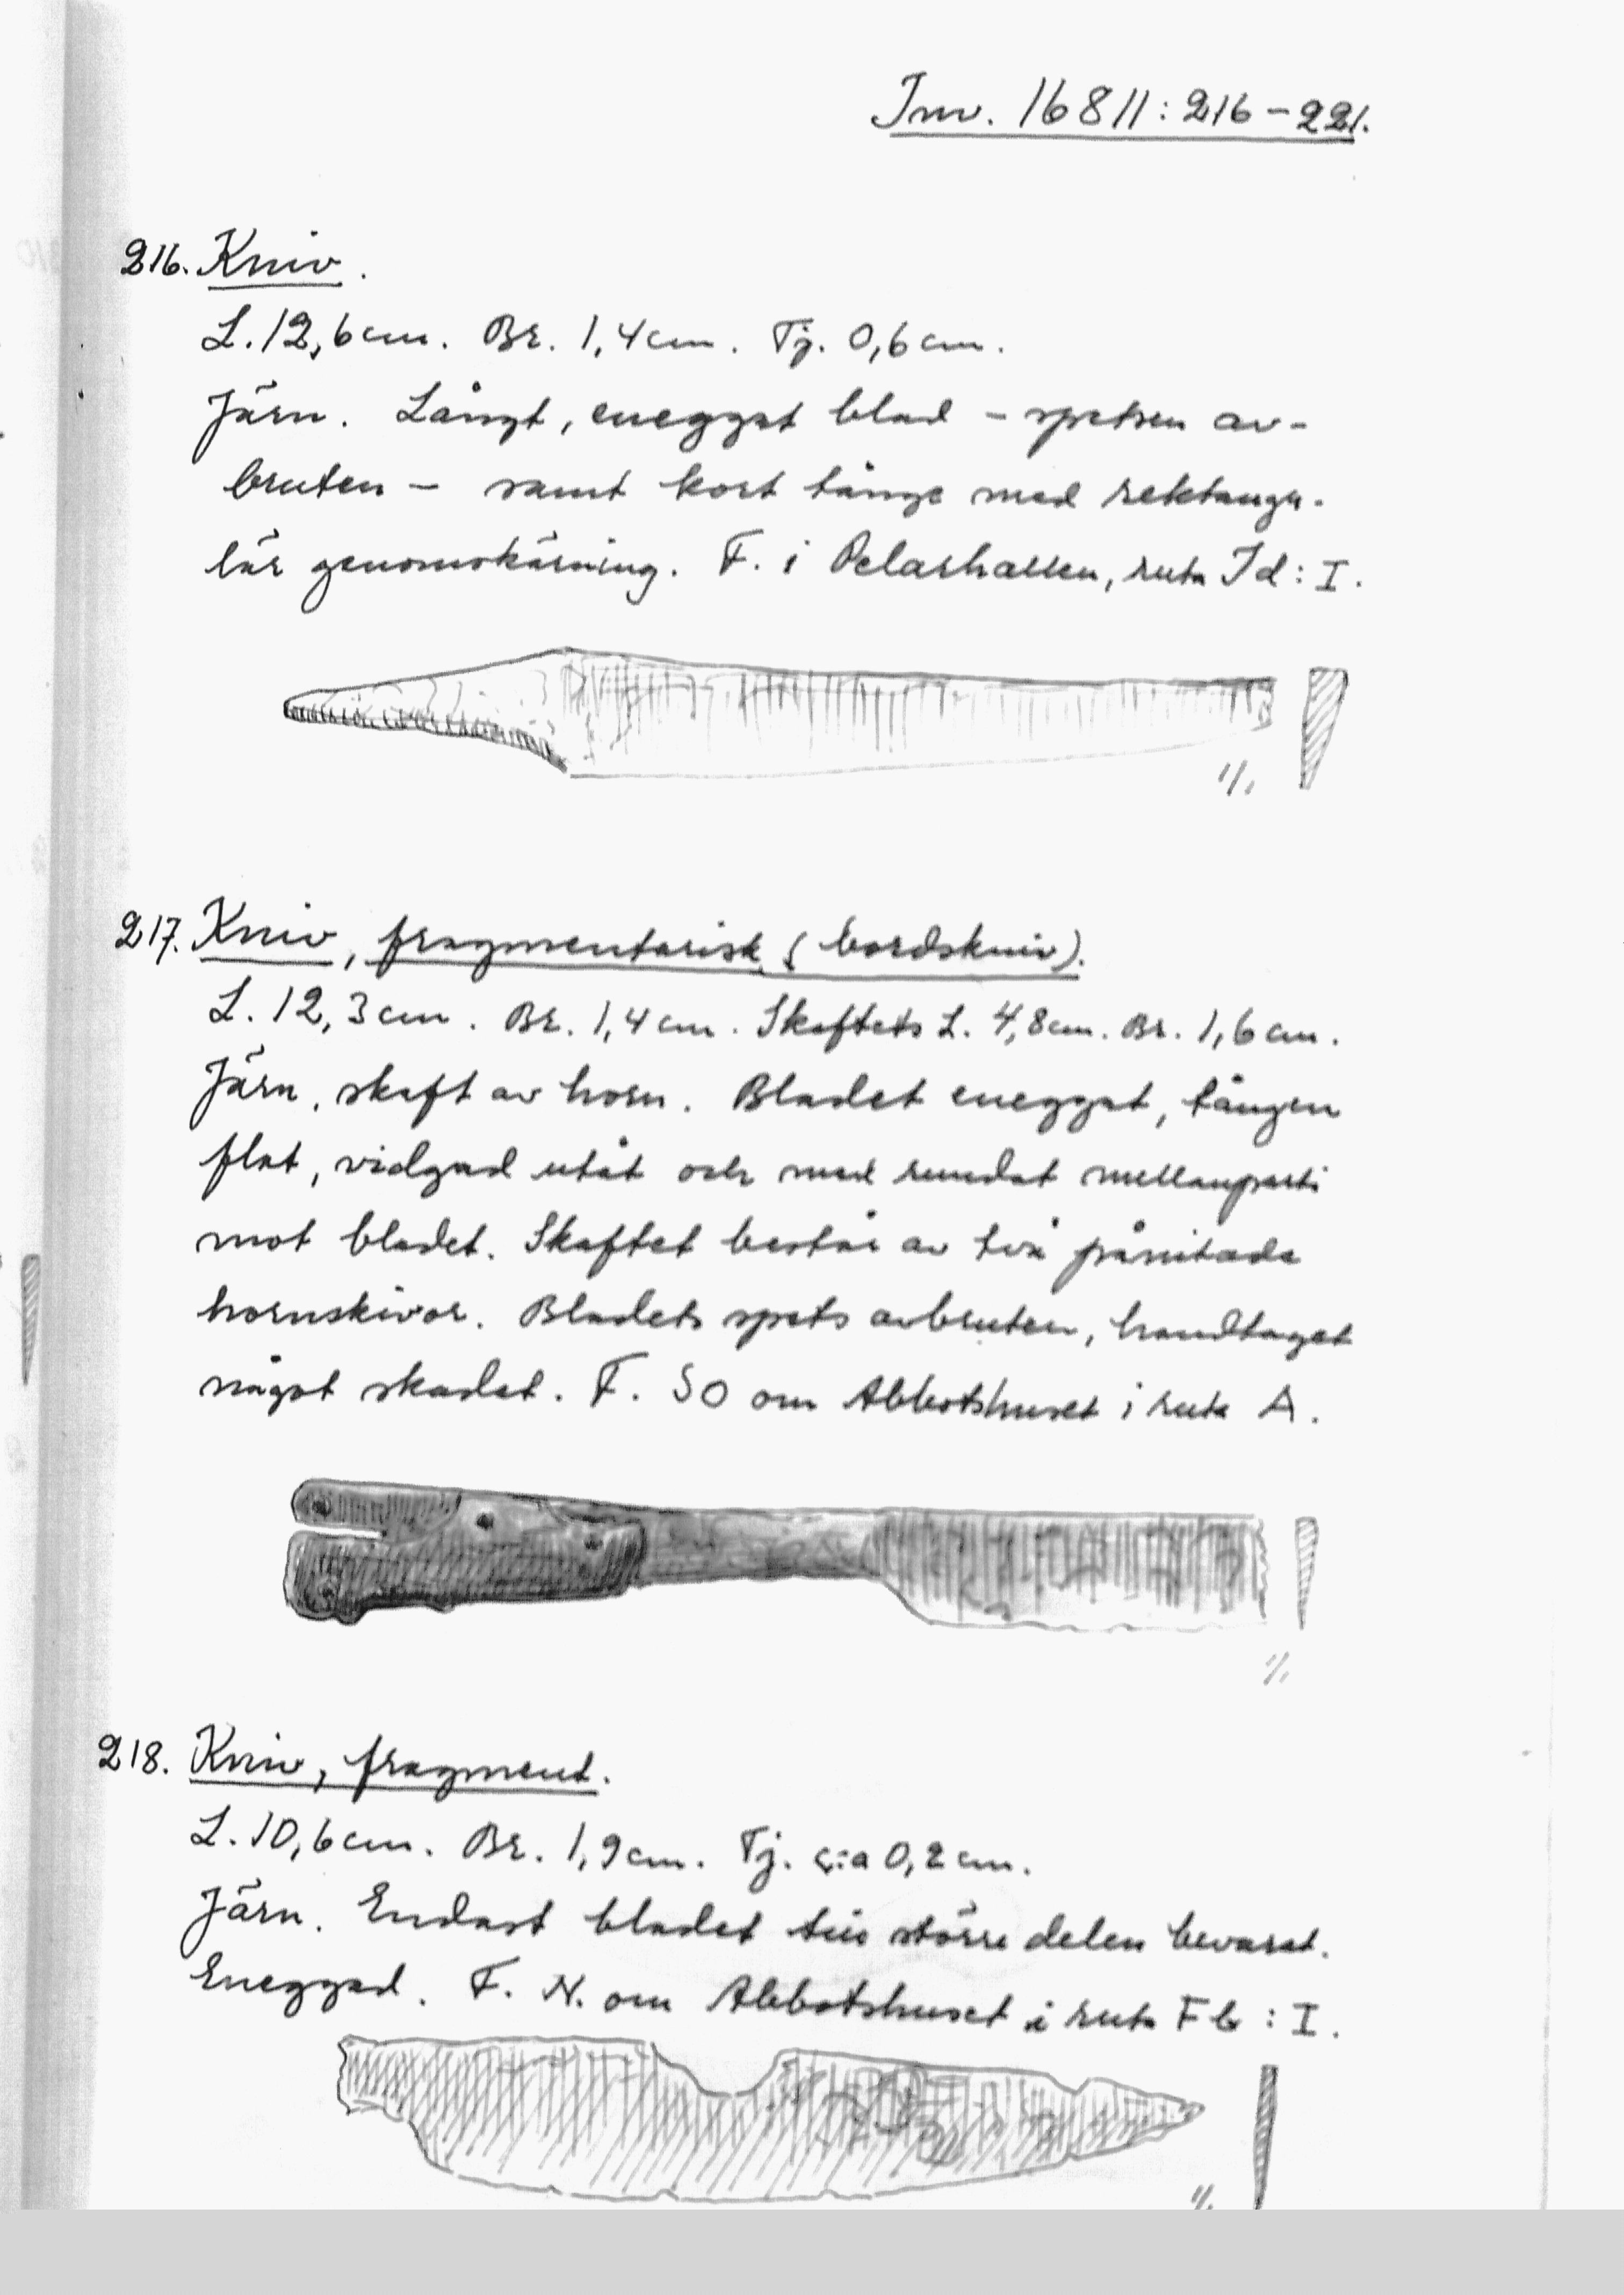 Inv. 16811:216-221.
216. Kniv.
L. 12,6 cm. Br. 1,4 cm. Tj. 0,6 cm.
Järn. Långt, eneggat blad - spetsen av-
bruten - samt kort tånge med rektangu-
lär genomskärning. F. i Pelarhallen, ruta Id:I.
1/1
217. Kniv, fragmentarisk (bordskniv).
L. 12,3 cm. Br. 1,4 cm. Skaftets L. 4,8 cm. Br. 1,6 cm.
Järn, skaft av horn. Bladet eneggat, tången
flat, vidgad utåt och med rundat mellanparti
mot bladet. Skaftet består av två pånitade
hornskivor. Bladets spets avbruten, handtaget
något skadat. F. SO om Abbotshuset i ruta A.
1/1
218. Kniv, fragment.
L. 10,6 cm. Br. 1,9 cm. Tj. c:a 0,2 cm.
Järn. Endast bladet till större delen bevarat.
Eneggad. F. N. om Abbotshuset i ruta Fb:I.
1/1